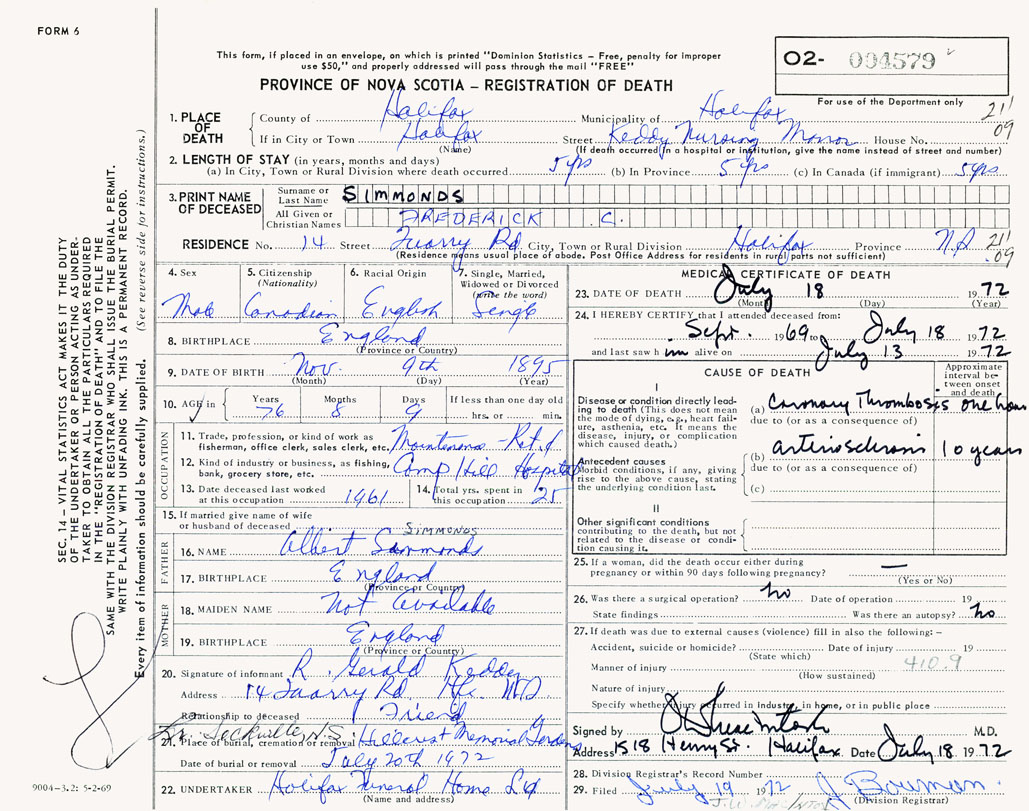 FORM 6
This form, if placed in an envelope, on which is printed "Dominion Statistics – Free, penalty for improper
use $50," and properly addressed will pass through the mail "FREE"
PROVINCE OF NOVA SCOTIA – REGISTRATION OF DEATH
O2- 004579
For use of the Department only
21
09
1. PLACE OF DEATH
County of Halifax Municipality of Halifax
If in City or Town Halifax Street Keddy Nursing Manor House No.
(Name) (If death occurred in a hospital or institution, give the name instead of street and number)
2. LENGTH OF STAY (in years, months and days)
(a) In City, Town or Rural Division where death occurred 5 yrs (b) In Province 5 yrs (c) In Canada (if immigrant) 5 yrs
3. PRINT NAME OF DECEASED
Surname or Last Name SIMMONDS
All Given or Christian Names FREDERICK C.
RESIDENCE No. 14 Street Quarry Rd City, Town or Rural Division Halifax Province N.S 21
.09
(Residence means usual place of abode. Post Office Address for residents in rural parts not sufficient)
4. Sex Male
5. Citizenship (Nationality) Canadian
6. Racial Origin English
7. Single, Married, Widowed or Divorced (write the word) Single
8. BIRTHPLACE England
(Province or Country)
9. DATE OF BIRTH Nov. 9th 1895
(Month) (Day) (Year)
10. AGE in Years 76 Months 8 Days 9 If less than one day old hrs. or min.
OCCUPATION
11. Trade, profession, or kind of work as fisherman, office clerk, sales clerk, etc.
12. Kind of industry or business, as fishing, bank, grocery store, etc. Camp Hill Hospital
13. Date deceased last worked at this occupation 1961
14. Total yrs. spent in this occupation 25
15. If married give name of wife or husband of deceased
SIMMONDS
FATHER
16. NAME Albert Simmonds
17. BIRTHPLACE England
(Province or Country)
MOTHER
18. MAIDEN NAME Not Available
19. BIRTHPLACE England
(Province or Country)
20. Signature of informant R. Gerald Keddy
Address 14 Quarry Rd Hfx N.S
Relationship to deceased Friend
Sackville N.S.
21. Place of burial, cremation or removal Hillcrest Memorial Gardens
Date of burial or removal July 20th 1972
22. UNDERTAKER Halifax Funeral Home Ltd
(Name and address)
MEDICAL CERTIFICATE OF DEATH
23. DATE OF DEATH July 18 1972
(Month) (Day) (Year)
24. I HEREBY CERTIFY that I attended deceased from:
Sept. 1969 to July 18 1972
and last saw him alive on July 13 1972
CAUSE OF DEATH
Approximate interval between onset and death
I
Disease or condition directly leading to death (This does not mean the mode of dying, e.g., heart failure, asthenia, etc. It means the disease, injury, or complication which caused death.)
(a) Coronary Thrombosis one hour
due to (or as a consequence of)
Antecedent causes
Morbid conditions, if any, giving rise to the above cause, stating the underlying condition last.
(b) Arteriosclerosis 10 years
due to (or as a consequence of)
(c)
II
Other significant conditions contributing to the death, but not related to the disease or condition causing it.
25. If a woman, did the death occur either during
pregnancy or within 90 days following pregnancy? —
(Yes or No)
26. Was there a surgical operation? no Date of operation 19
State findings Was there an autopsy? no
27. If death was due to external causes (violence) fill in also the following: –
Accident, suicide or homicide? Date of injury 19
(State which)
410.9
Manner of injury
(How sustained)
Nature of injury
Specify whether injury occurred in industry, in home, or in public place
Signed by M.D.
Address 1518 Henry St. Halifax. Date July 18 1972
28. Division Registrar's Record Number
29. Filed July 19 1972 J Bowman
(Division Registrar)
SEC. 14 – VITAL STATISTICS ACT MAKES IT THE DUTY
OF THE UNDERTAKER OR PERSON ACTING AS UNDER-
TAKER TO OBTAIN ALL THE PARTICULARS REQUIRED
IN THE "REGISTRATION OF DEATH" AND TO FILE THE
SAME WITH THE DIVISION REGISTRAR WHO SHALL ISSUE THE BURIAL PERMIT.
WRITE PLAINLY WITH UNFADING INK. THIS IS A PERMANENT RECORD.
Every item of information should be carefully supplied. (See reverse side for instructions.)
9004-3.2: 5-2-69